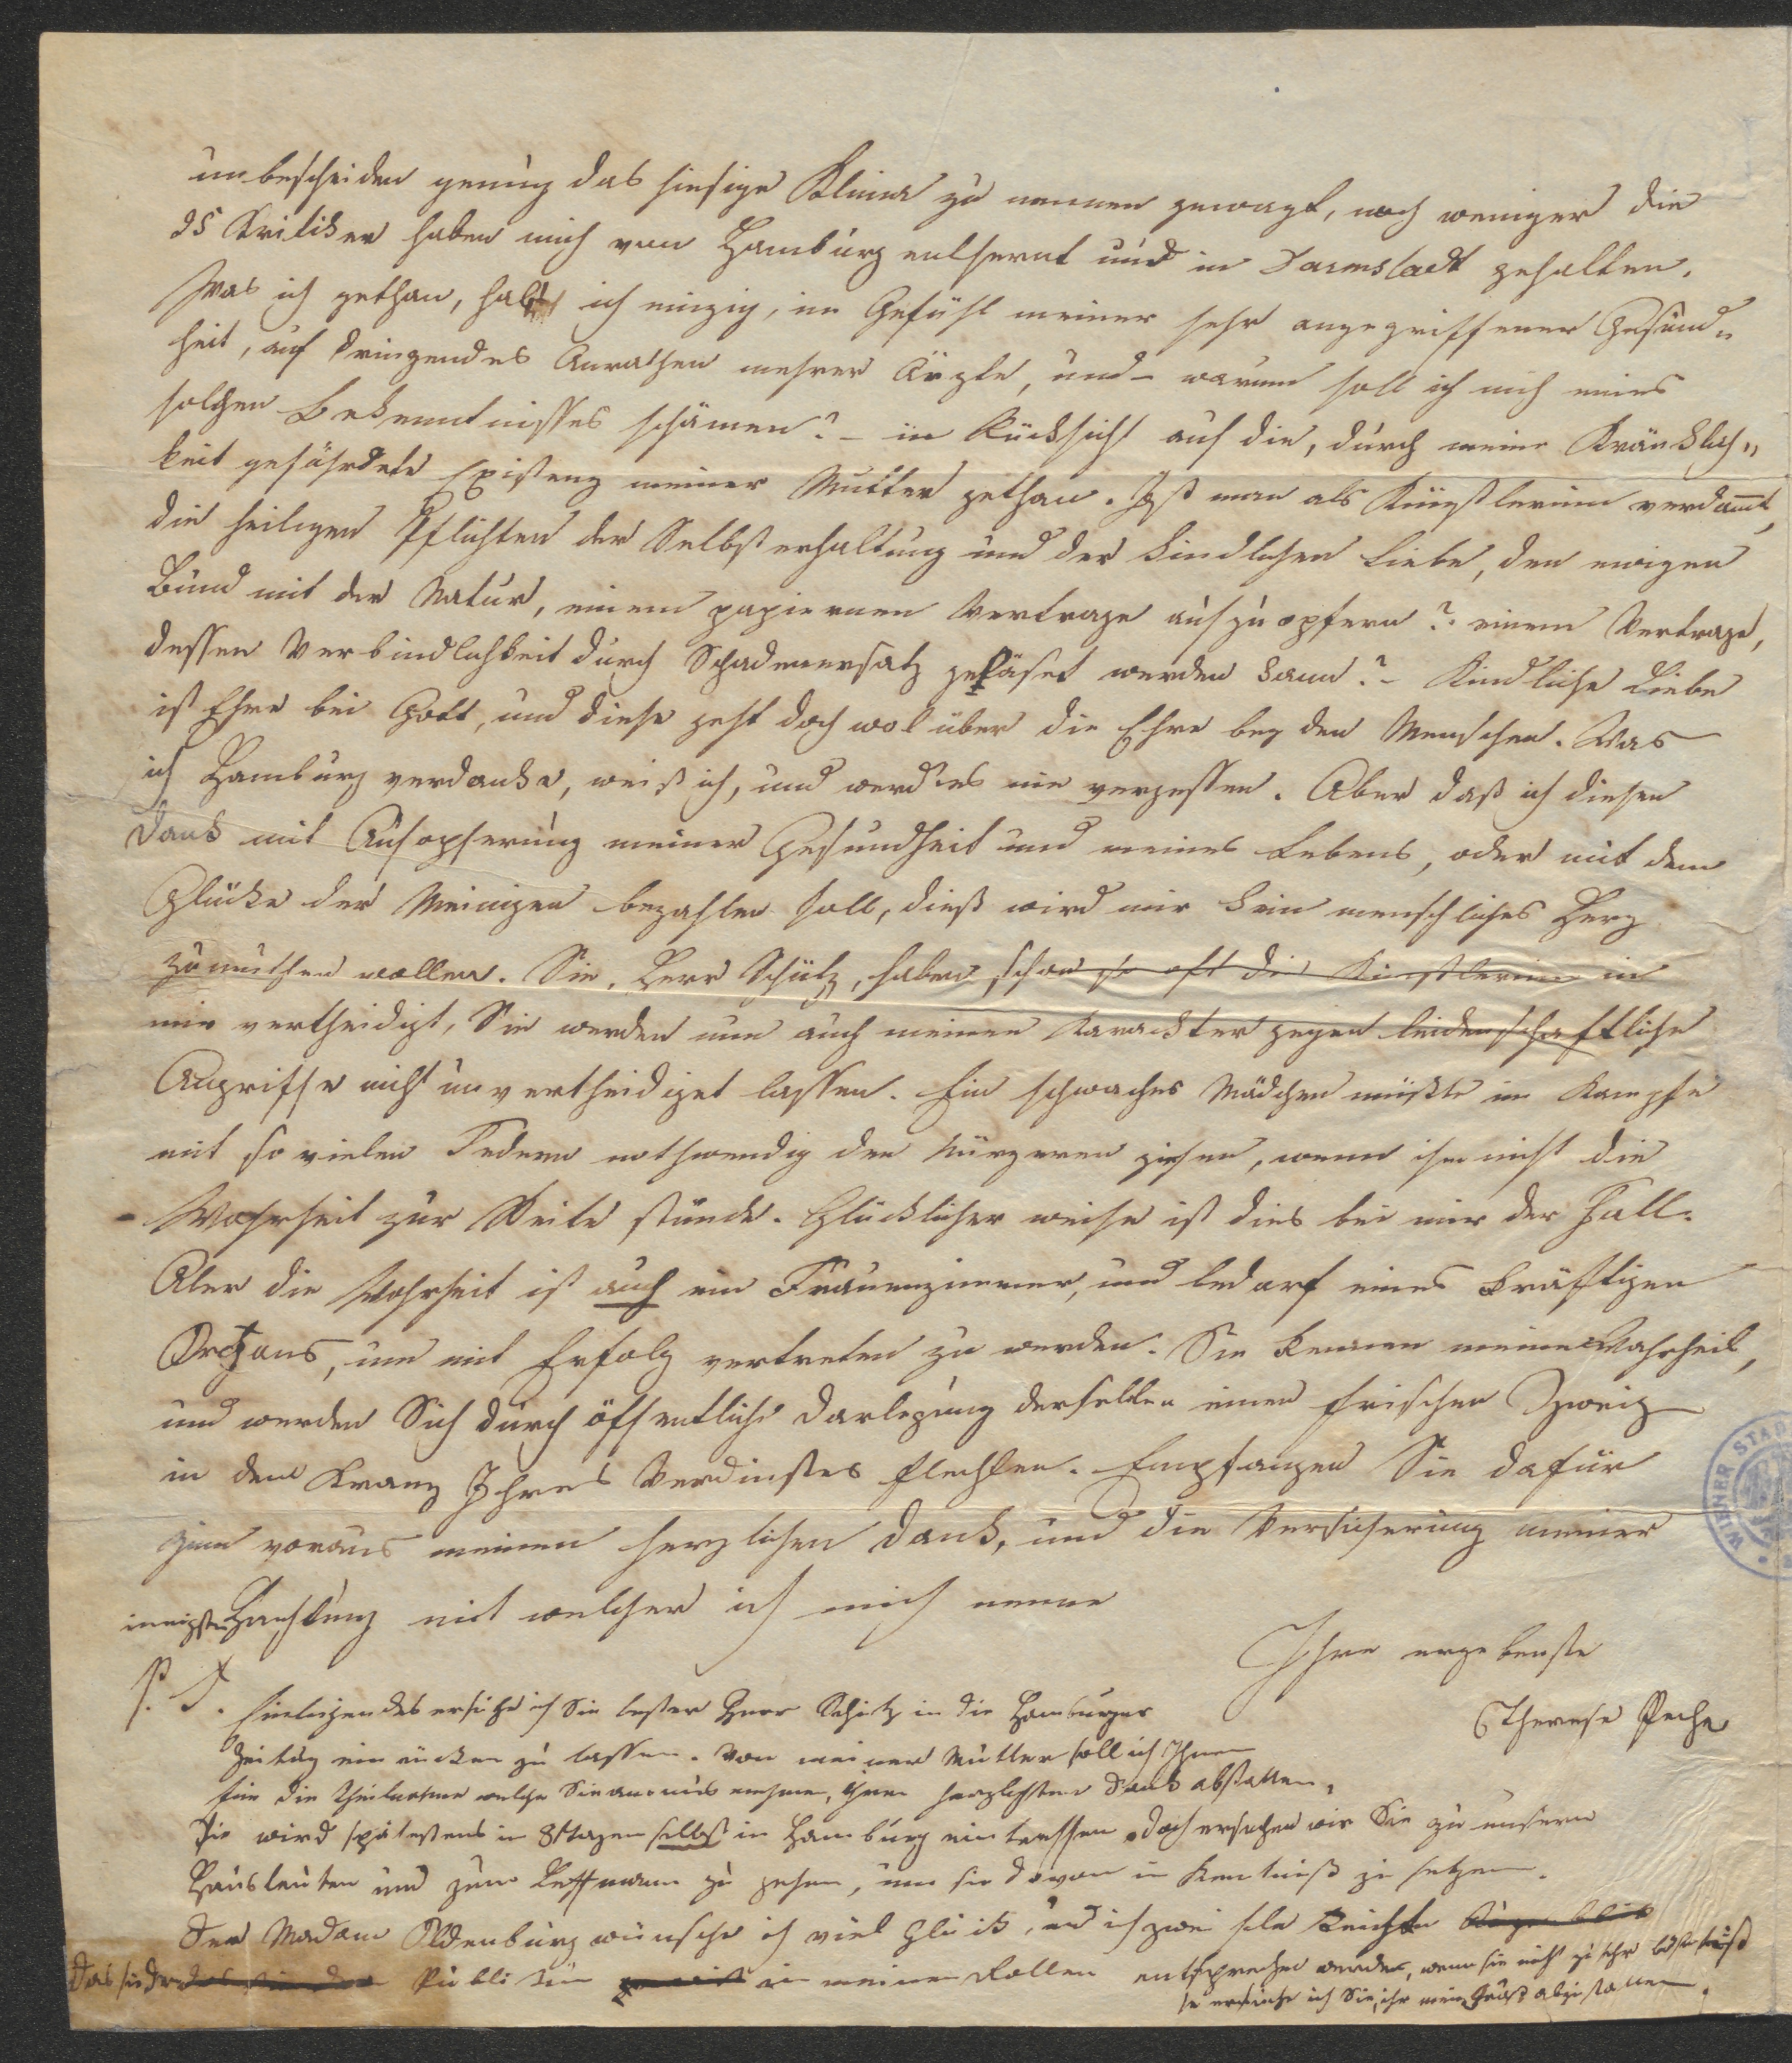 unbescheiden genug das hiesige Klima zu nennen gewagt, noch weniger die
Kritiker haben mich von Hamburg entfernt und in Darmstadt gehalten.
Was ich gethan, hab ich einzig, im Gefühl meiner sehr angegriffener Gesund„
heit, auf dringendes Anrathen mehrer Ärzte, und – warum soll ich mich eines
solchen Bekenntnisses schämen? – in Rücksicht auf die, durch meine Kränklich„
keit gefährdete Existenz meiner Mutter gethan. Ist man als Künstlerinn verdam̅t,
die heiligen Pflichten der Selbsterhaltung und der kindlichen Liebe, den ewigen
Bund mit der Natur, einem papiernen Vertrage aufzuopfern? einem Vertrage,
dessen Verbindlichkeit durch Schadenersatz gelöset werden kann? – Kindliche Liebe
ist Ehre bei Gott, und diese geht doch wol über die Ehre bey den Menschen. Was
ich Hamburg verdanke, weiß ich, und werd es nie vergessen. Aber daß ich diesen
Dank mit Aufopferung meiner Gesundheit und meines Lebens, oder mit dem
Glücke der Meinigen bezahlen soll, dieß wird mir kein menschliches Herz
zumuthen wollen. Sie, Herr Schütz, haben schon so oft die Künstlerinn in
mir vertheidigt, Sie werden nun auch meinen Karackter gegen leidenschaftliche
Angriffe nicht unvertheidiget lassen. Ein schwaches Mädchen müßte im Kampfe
mit so vielen Federn nothwendig den kürzeren ziehen, wenn ihm nicht die
Wahrheit zur Seite stünde. Glücklicher weise ist dies bei mir der Fall.
Aber die Wahrheit ist auch ein Frauenzimmer, und bedarf eines kräftigen
Organs, um mit Erfolg vertreten zu werden. Sie kennen meine Wahrheit,
und werden Sich durch öffentliche Darlegung derselben einen frischen Zweig
in den Kranz Ihres Verdienstes flechten. Empfangen Sie dafür
zum voraus meinen herzlichen Dank, und die Versicherung meiner
innigsten Hachtung mit welcher ich mich nenne
Ihre ergebenste
Therese Peche
P. S. Einliegendes ersuche ich Sie bester Herr Schütz in die Hamburger
Zeitung ein rücken zu lassen. Von meiner Mutter soll ich Ihnen
für die Theilnahme welche Sie an uns nehmen, ihren herzlichsten Dank abstatten.
Sie wird spätestens in 8 Tagen selbst in Hamburg eintreffen. doch ersuchen wir Sie zu unsern
Hausleuten und zum zu gehen, um sie davon in Kentniß zu setzen.
Der Madam Oldenburg wünsche ich viel Glück, und ich zwei
das sie dem Publikum in meinen Rollen entsprechen werden, wenn sie nicht zu sehr
so ersuche ich Sie, ihr meinen Gruß abzustatten.
WIENER STAD